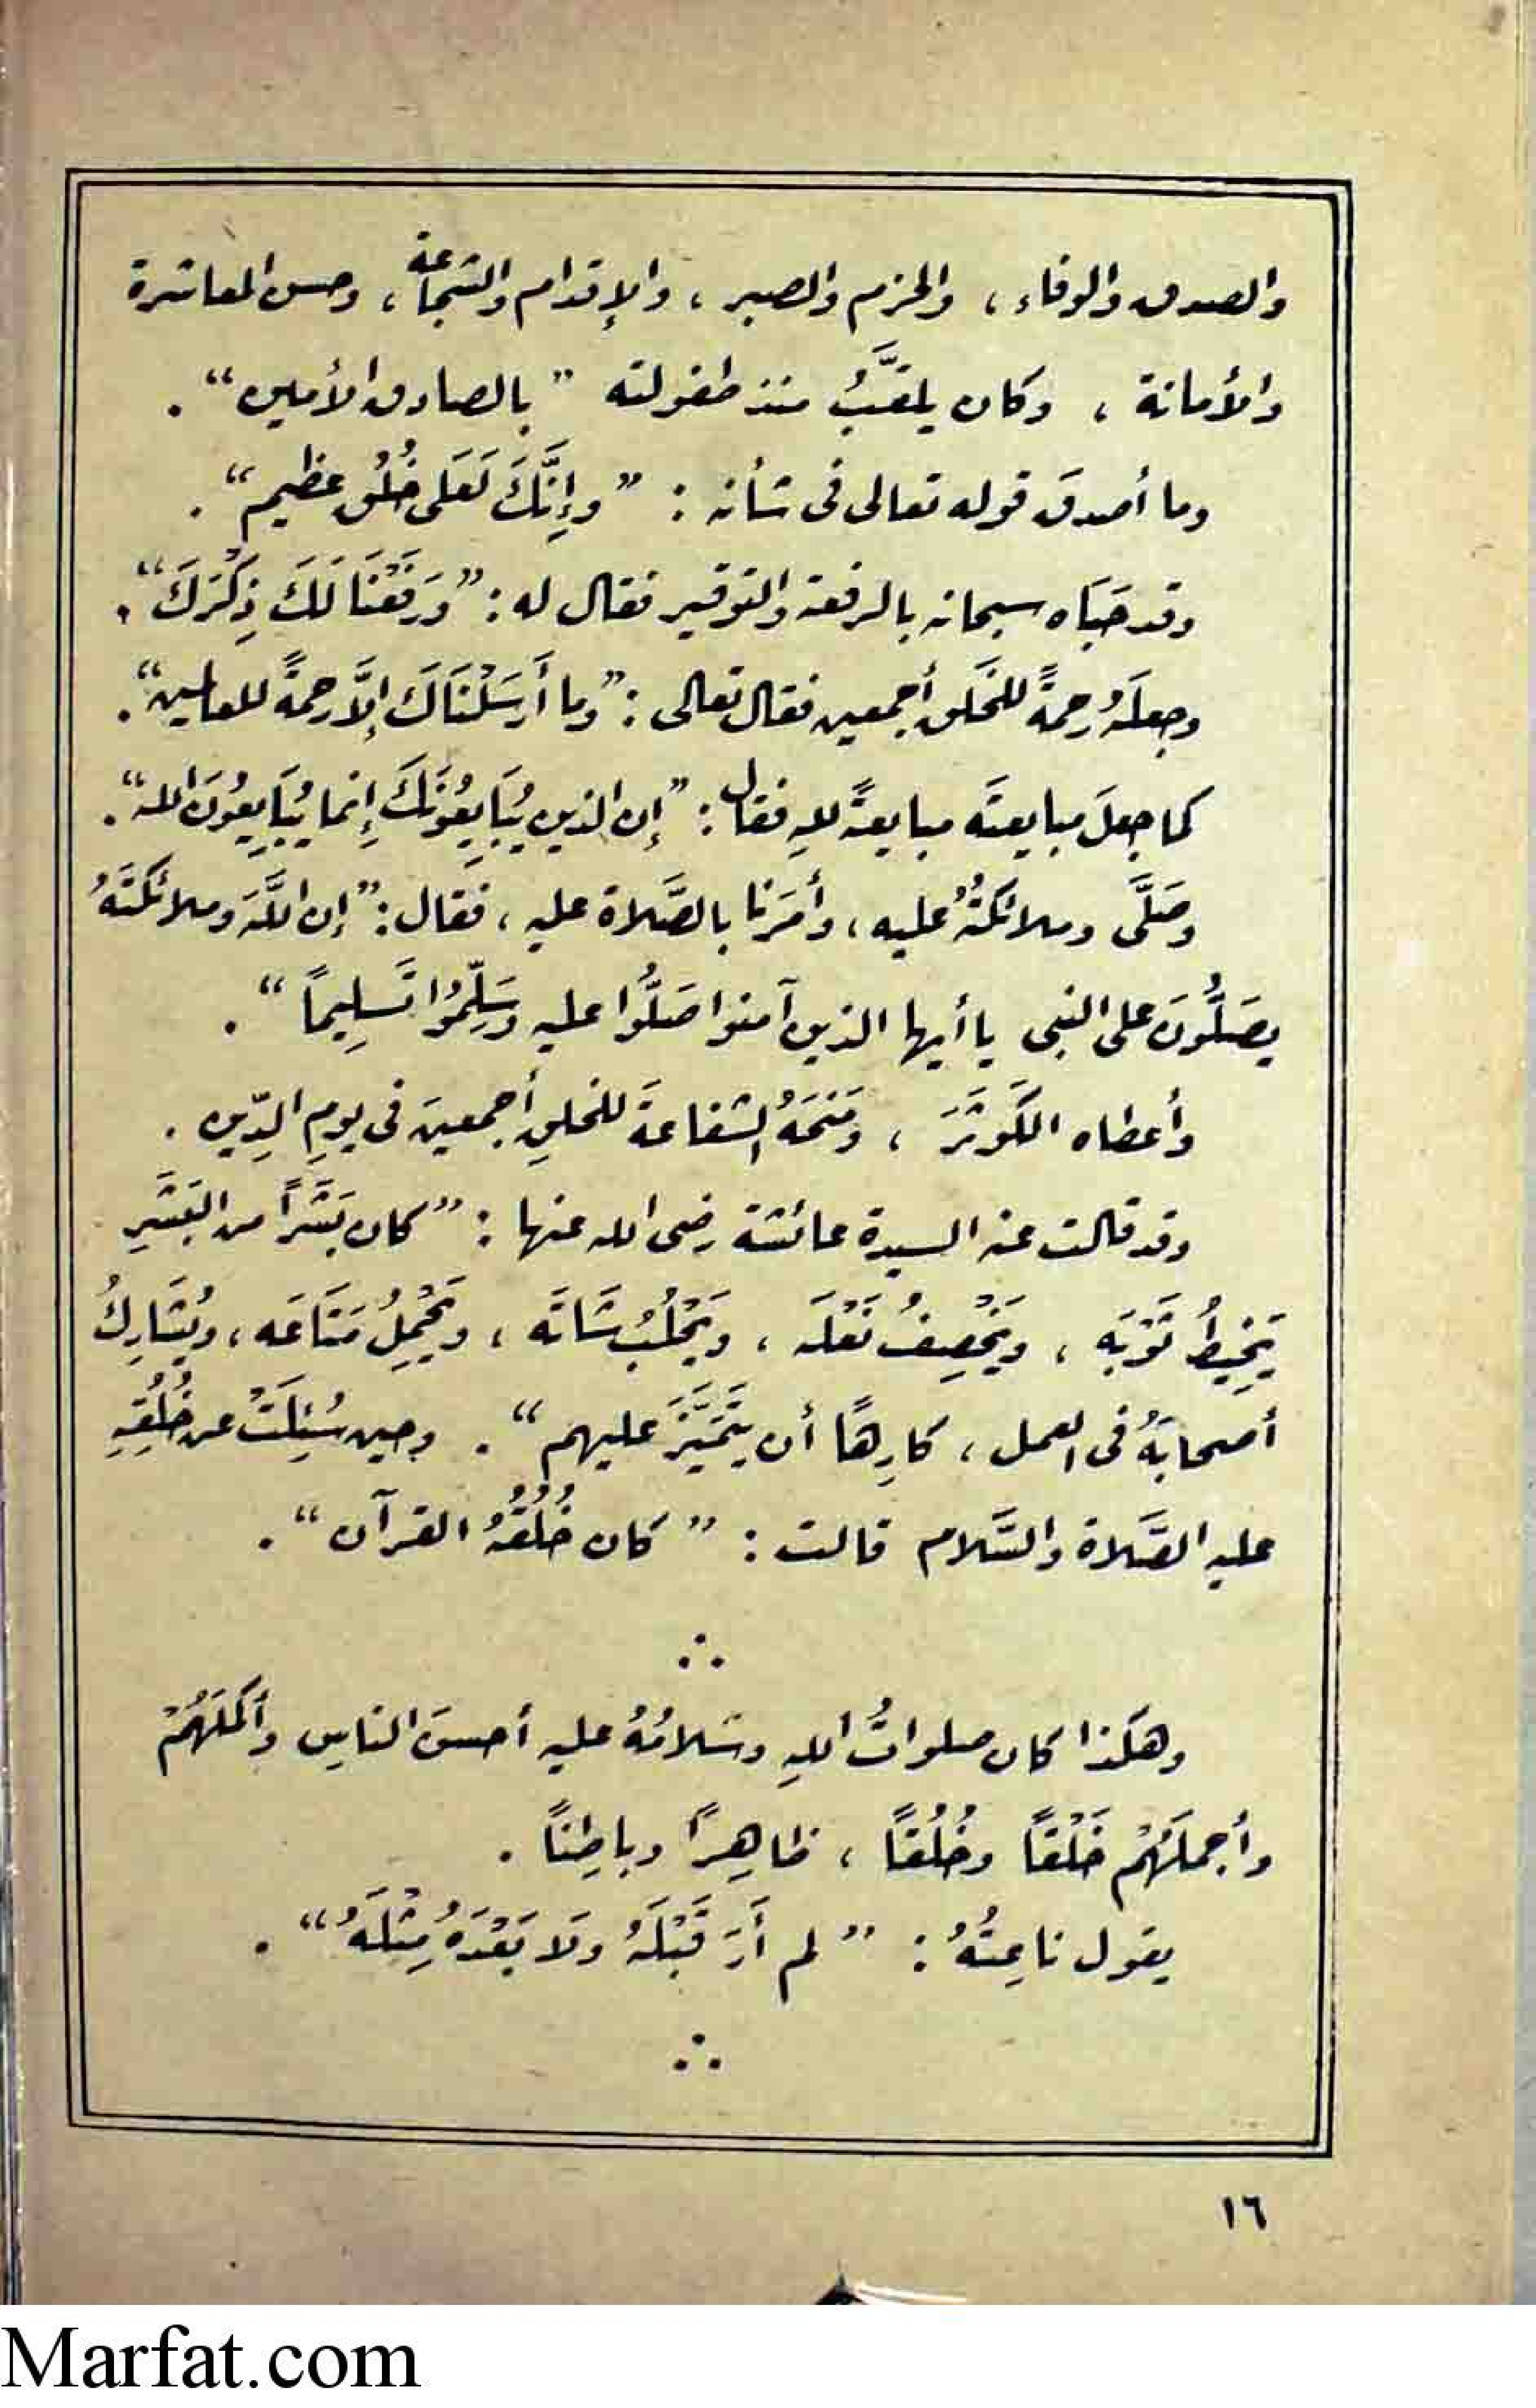 والصدق والوفاء ، والحزم والصبر ، والإقدام والشجاعة ، وحسن المعاشرة
والأمانة ، وكان يلقَّبُ منذ طفولته " بالصادق الأمين " .
وما أصدقَ قوله تعالى فى شأنه : " وإِنَّكَ لَعَلَى خُلُقٍ عظيم " .
وقد حَبَاه سبحانه بالرفعة والتوقير فقال له : " وَرَفَعْنَا لَكَ ذِكْرَكَ " .
وجعلَهُ رحمةً للخَلق أجمعين فقال تعالى : " وما أَرسَلْنَاكَ إلَّا رحمةً للعالمين " .
كما جعلَ مبايعتَه مبايعةً للهِ فقال : " إن الذين يُبَايِعُونَكَ إِنما يُبَايِعُونَ الله " .
وصَلَّى وملائكتُهُ عليه ، وأمَرَنا بالصَّلاة عليه ، فقال : " إن اللَّهَ وملائكتَهُ
يصَلُّونَ على النبى يا أيها الذين آمنوا صَلُّوا عليه وسَلِّمُوا تَسلِيماً " .
وأعطاه الكَوثَرَ ، ومَنَحَهُ الشفاعةَ للخلقِ أجمعينَ فى يومِ الدِّين .
وقد قالت عنه السيدة عائشة رضى الله عنها : " كان بَشَراً من البَشَرِ
يَخِيطُ ثَوْبَه ، ويَخْصِفُ نَعْلَه ، ويَحْلُبُ شَاتَه ، ويَحْمِلُ مَتَاعَه ، ويُشَارِكُ
أصحابَهُ فى العمل ، كارِهاً أن يَتَمَيَّزَ عليهم " . وحين سُئِلَتْ عن خُلُقِهِ
عليه الصَّلاة والسَّلام قالت : " كان خُلُقُهُ القرآن " .
∴
وهكذا كان صلواتُ اللهِ وسَلامُهُ عليه أحسنَ الناسِ وأكمَلَهُمْ
وأجملَهُمْ خَلْقاً وخُلُقاً ، ظاهِراً وباطِناً .
يقول ناعِتُهُ : " لم أَرَ قَبْلَهُ ولَا بَعْدَهُ مِثْلَهُ " .
∴
١٦
Marfat.com